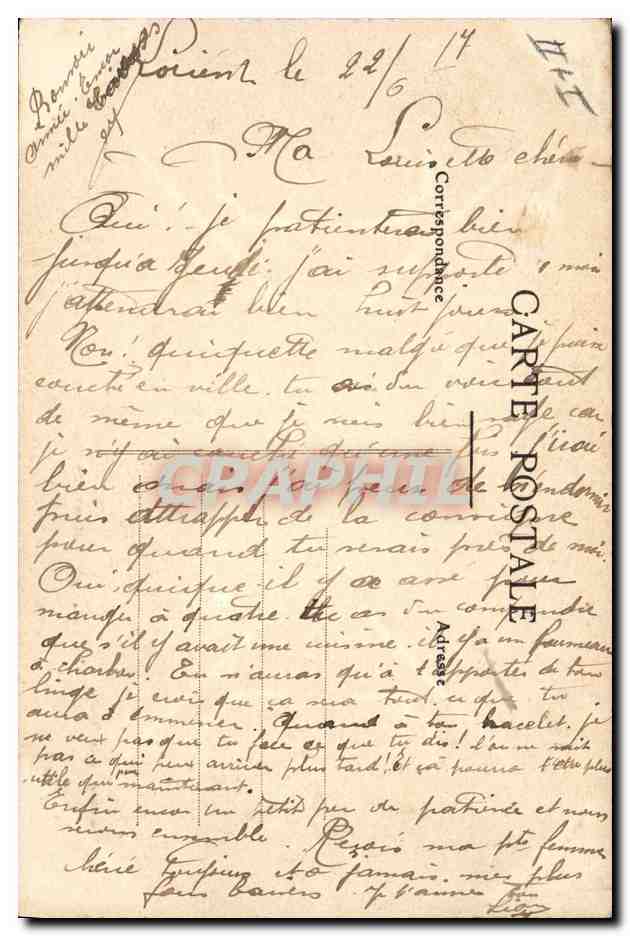 Lorient le 22/6 17
II et I
Bonsoir
année
mille baisers
Ma Louisette chérie
Correspondance
CARTE POSTALE
Adresse
CPARAMA
Oui! je patienterai bien
jusqu'à Jeudi. j'ai supporté 1 mois
j'attendrai bien huit jours
Non! quiquette malgré que je puisse
coucher en ville. tu as du voir tout
de même que je suis bien sage car
je n'y ai couché qu'une fois j'irai
bien mais j'ai peur de m'endormir
puis attrapper de la consigne
pour quand tu serais près de moi.
Oui quique il y a assé pour
manger à quatre. tu as du comprendre
que s'il y avait une cuisine. il y a un fourneau
à charbon. Tu n'auras qu'à t'apporter de ton
linge je crois que ça sera tout ce que tu
aura à emmener. Quand à ton bracelet. je
ne veux pas que tu fasse ce que tu dis! l'on ne sait
pas ce qui peux arriver plus tard! Et ça pourra t'être plus
utile que maintenant.
Enfin encor un petit peu de patience et nous
serons ensemble. Reçois ma pte femme
chérie toujours et à jamais mes plus
fous baisers. Je t'aime ton